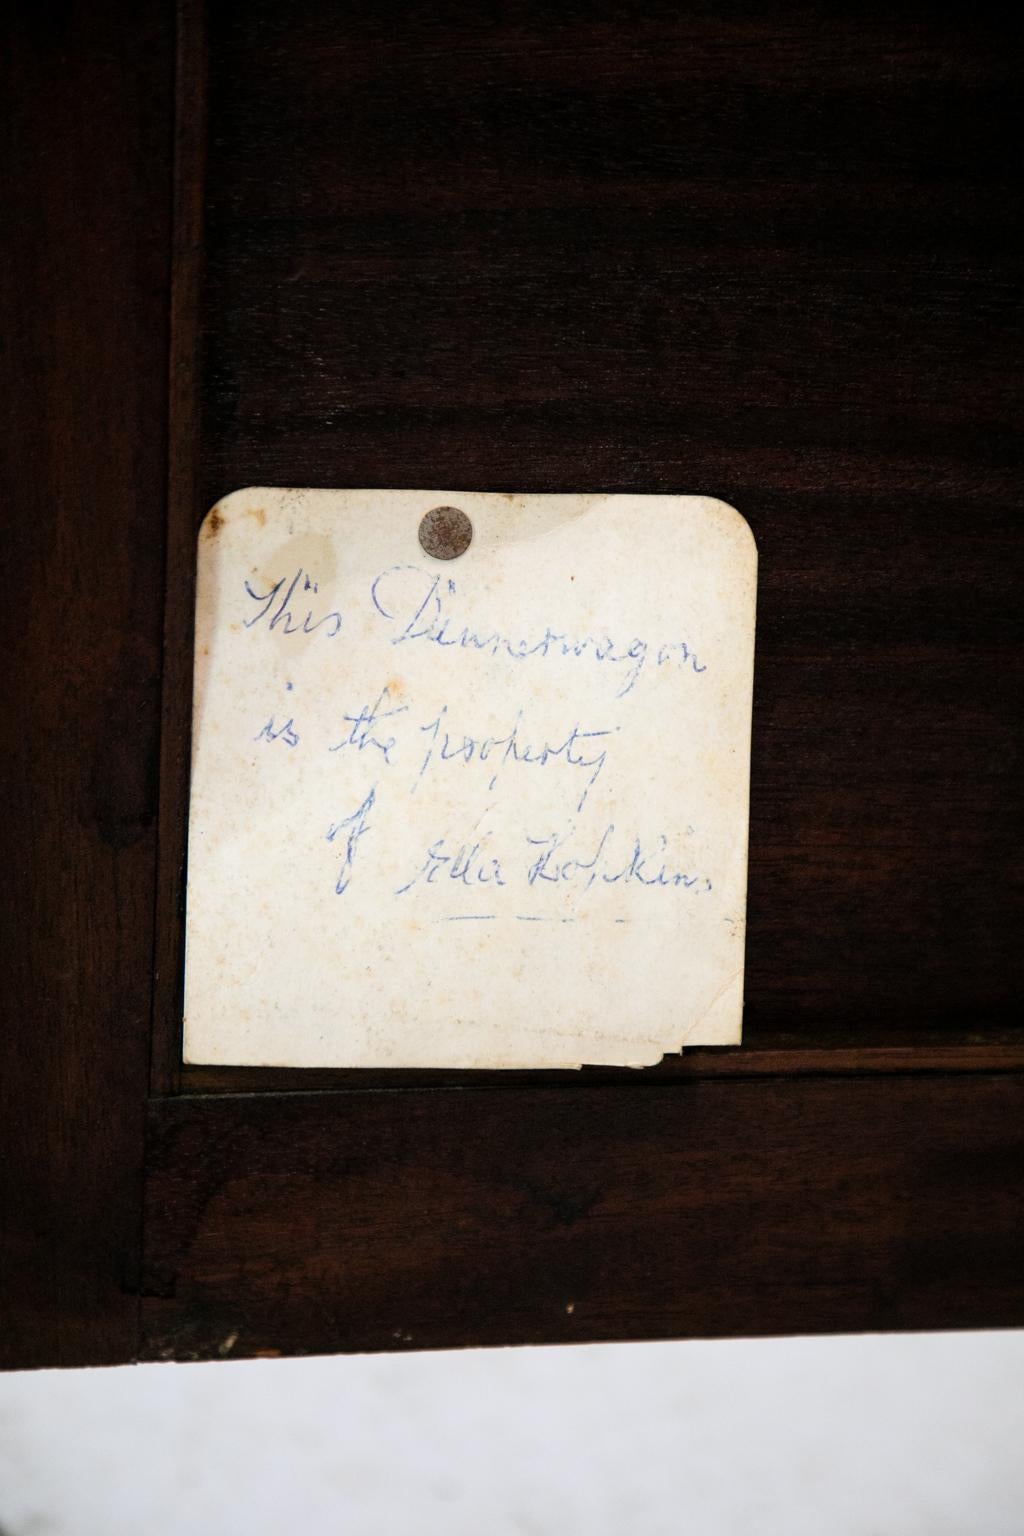 This Dinnerwagon
is the property
of Ella Hopkins